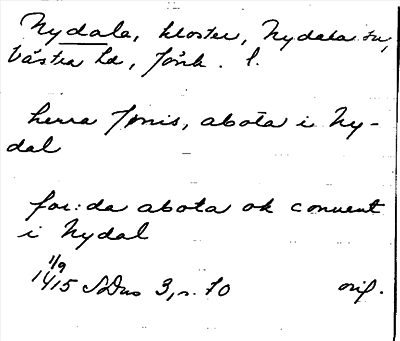 Nydala, kloster, Nydala sn,
Västra hd, Jönk. l.
herra Jønis, abota i Ny-
dal
for:da abota ok conuent
i Nydal
1/9
1415 SDns 3, s. 70 orig.